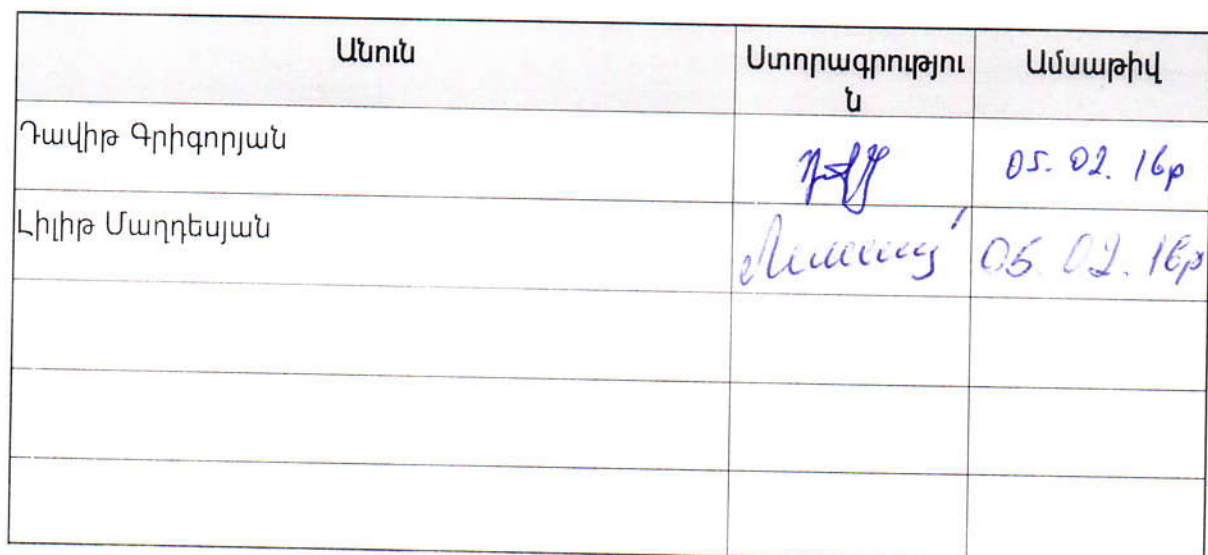 Անուն
Ստորագրությու
ն
Ամսաթիվ
Դավիթ Գրիգորյան
05.02.16թ
Լիլիթ Մաղդեսյան
05.02.16թ